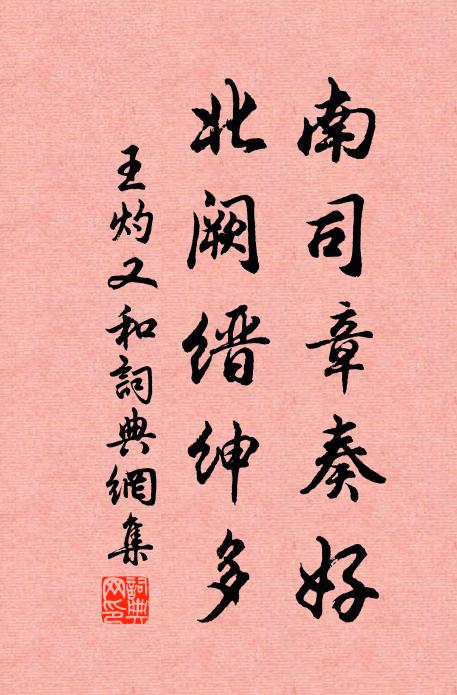 南司章奏好
北阙缙绅多
王灼又和詞典網集
詞典
网印